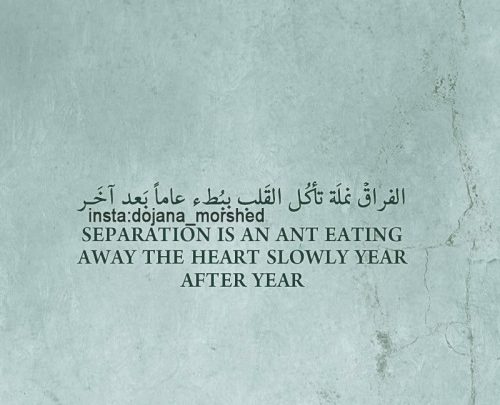 الفراقْ نملَة تأكُل القَلب ببُطء عاماً بَعد آخَر
insta:dojana_morshed
SEPARATION IS AN ANT EATING
AWAY THE HEART SLOWLY YEAR
AFTER YEAR